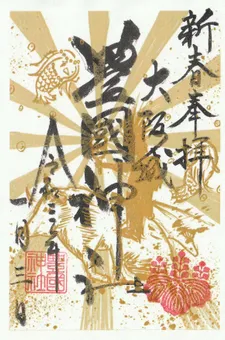 新春奉拝
大阪城
豊國神社
令和三年
一月三日